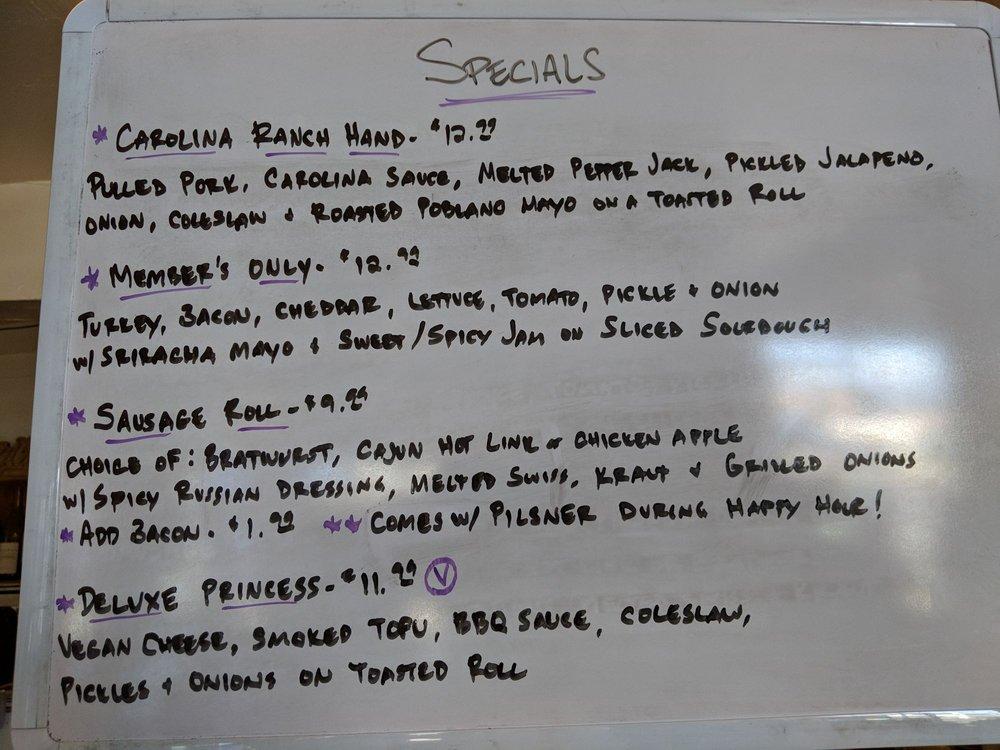 SPECIALS
* CAROLINA RANCH HAND - $12.99
PULLED PORK, CAROLINA SAUCE, MELTED PEPPER JACK, PICKLED JALAPENO,
ONION, COLESLAW & ROASTED POBLANO MAYO ON A TOASTED ROLL
* MEMBER'S ONLY - $12.99
TURKEY, BACON, CHEDDAR, LETTUCE, TOMATO, PICKLE & ONION
W/ SRIRACHA MAYO & SWEET/SPICY JAM ON SLICED SOURDOUGH
* SAUSAGE ROLL - $9.99
CHOICE OF: BRATWURST, CAJUN HOT LINK or CHICKEN APPLE
W/ SPICY RUSSIAN DRESSING, MELTED SWISS, KRAUT & GRILLED ONIONS
* ADD BACON - $1.99 ** COMES W/ PILSNER DURING HAPPY HOUR!
* DELUXE PRINCESS - $11.99 V
VEGAN CHEESE, SMOKED TOFU, BBQ SAUCE, COLESLAW,
PICKLES & ONIONS ON TOASTED ROLL